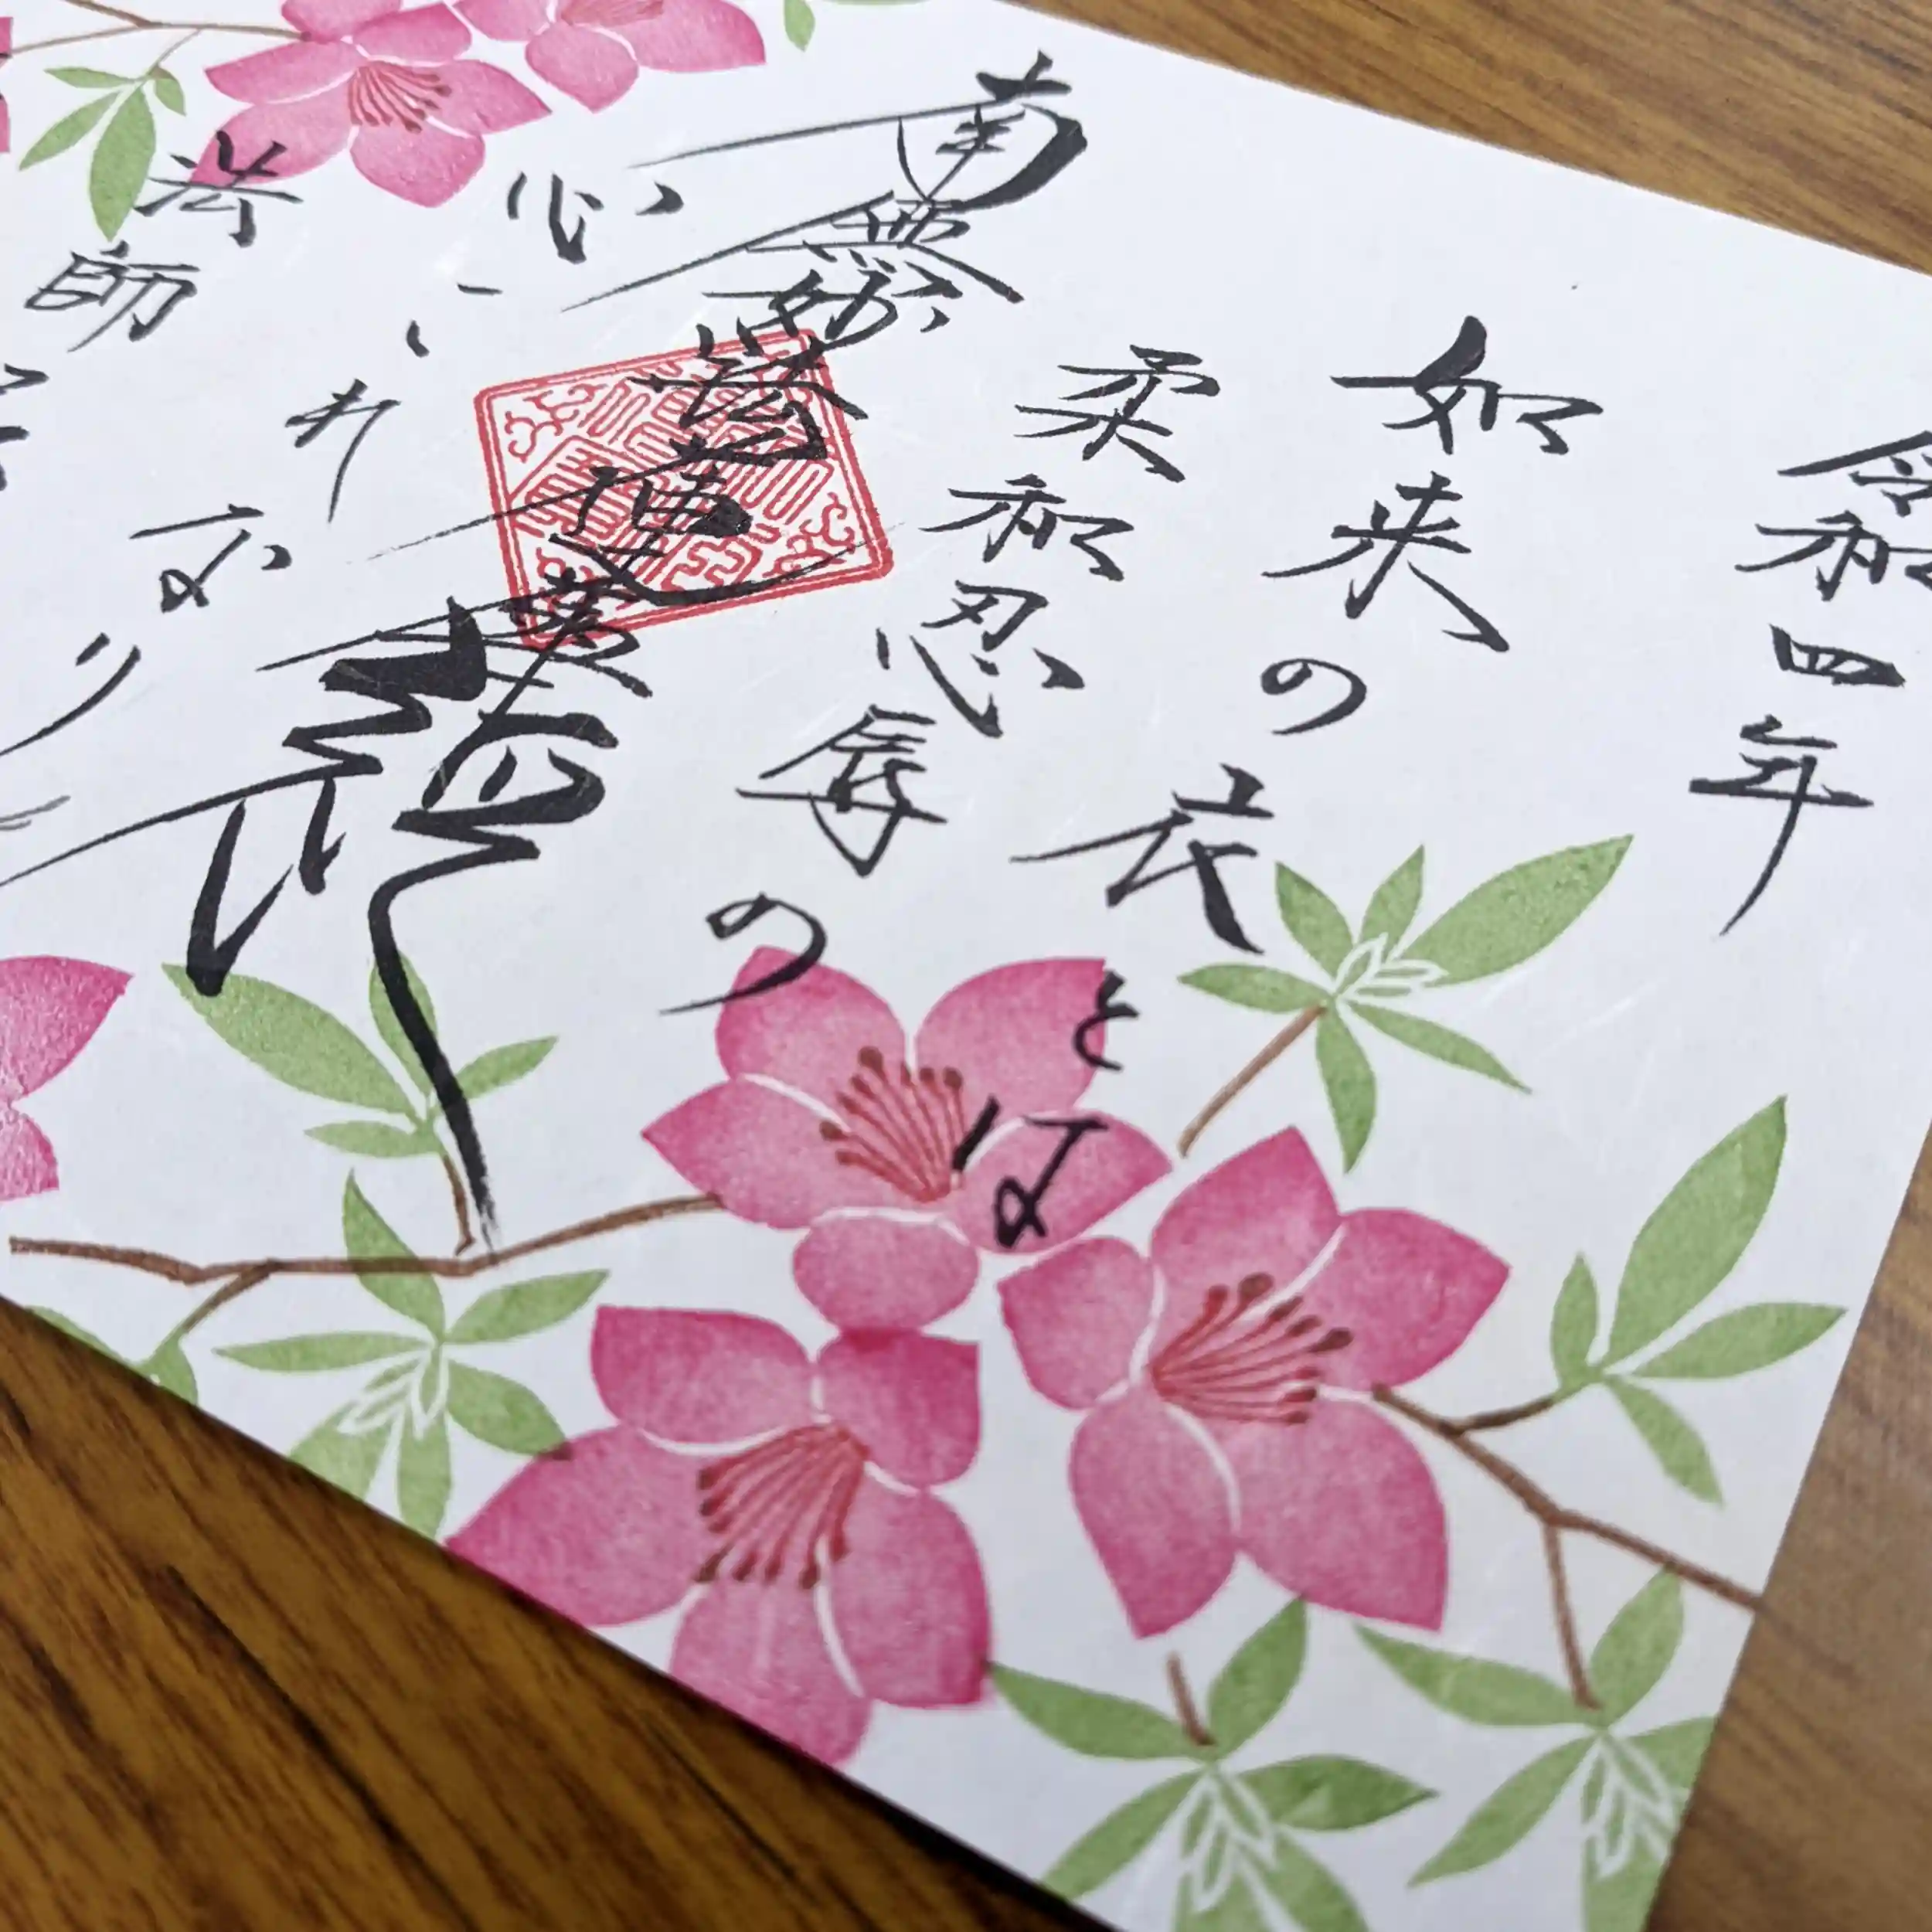 令和四年
如来の衣とは
柔和忍辱の
心これなり
南無妙法蓮華経
法師